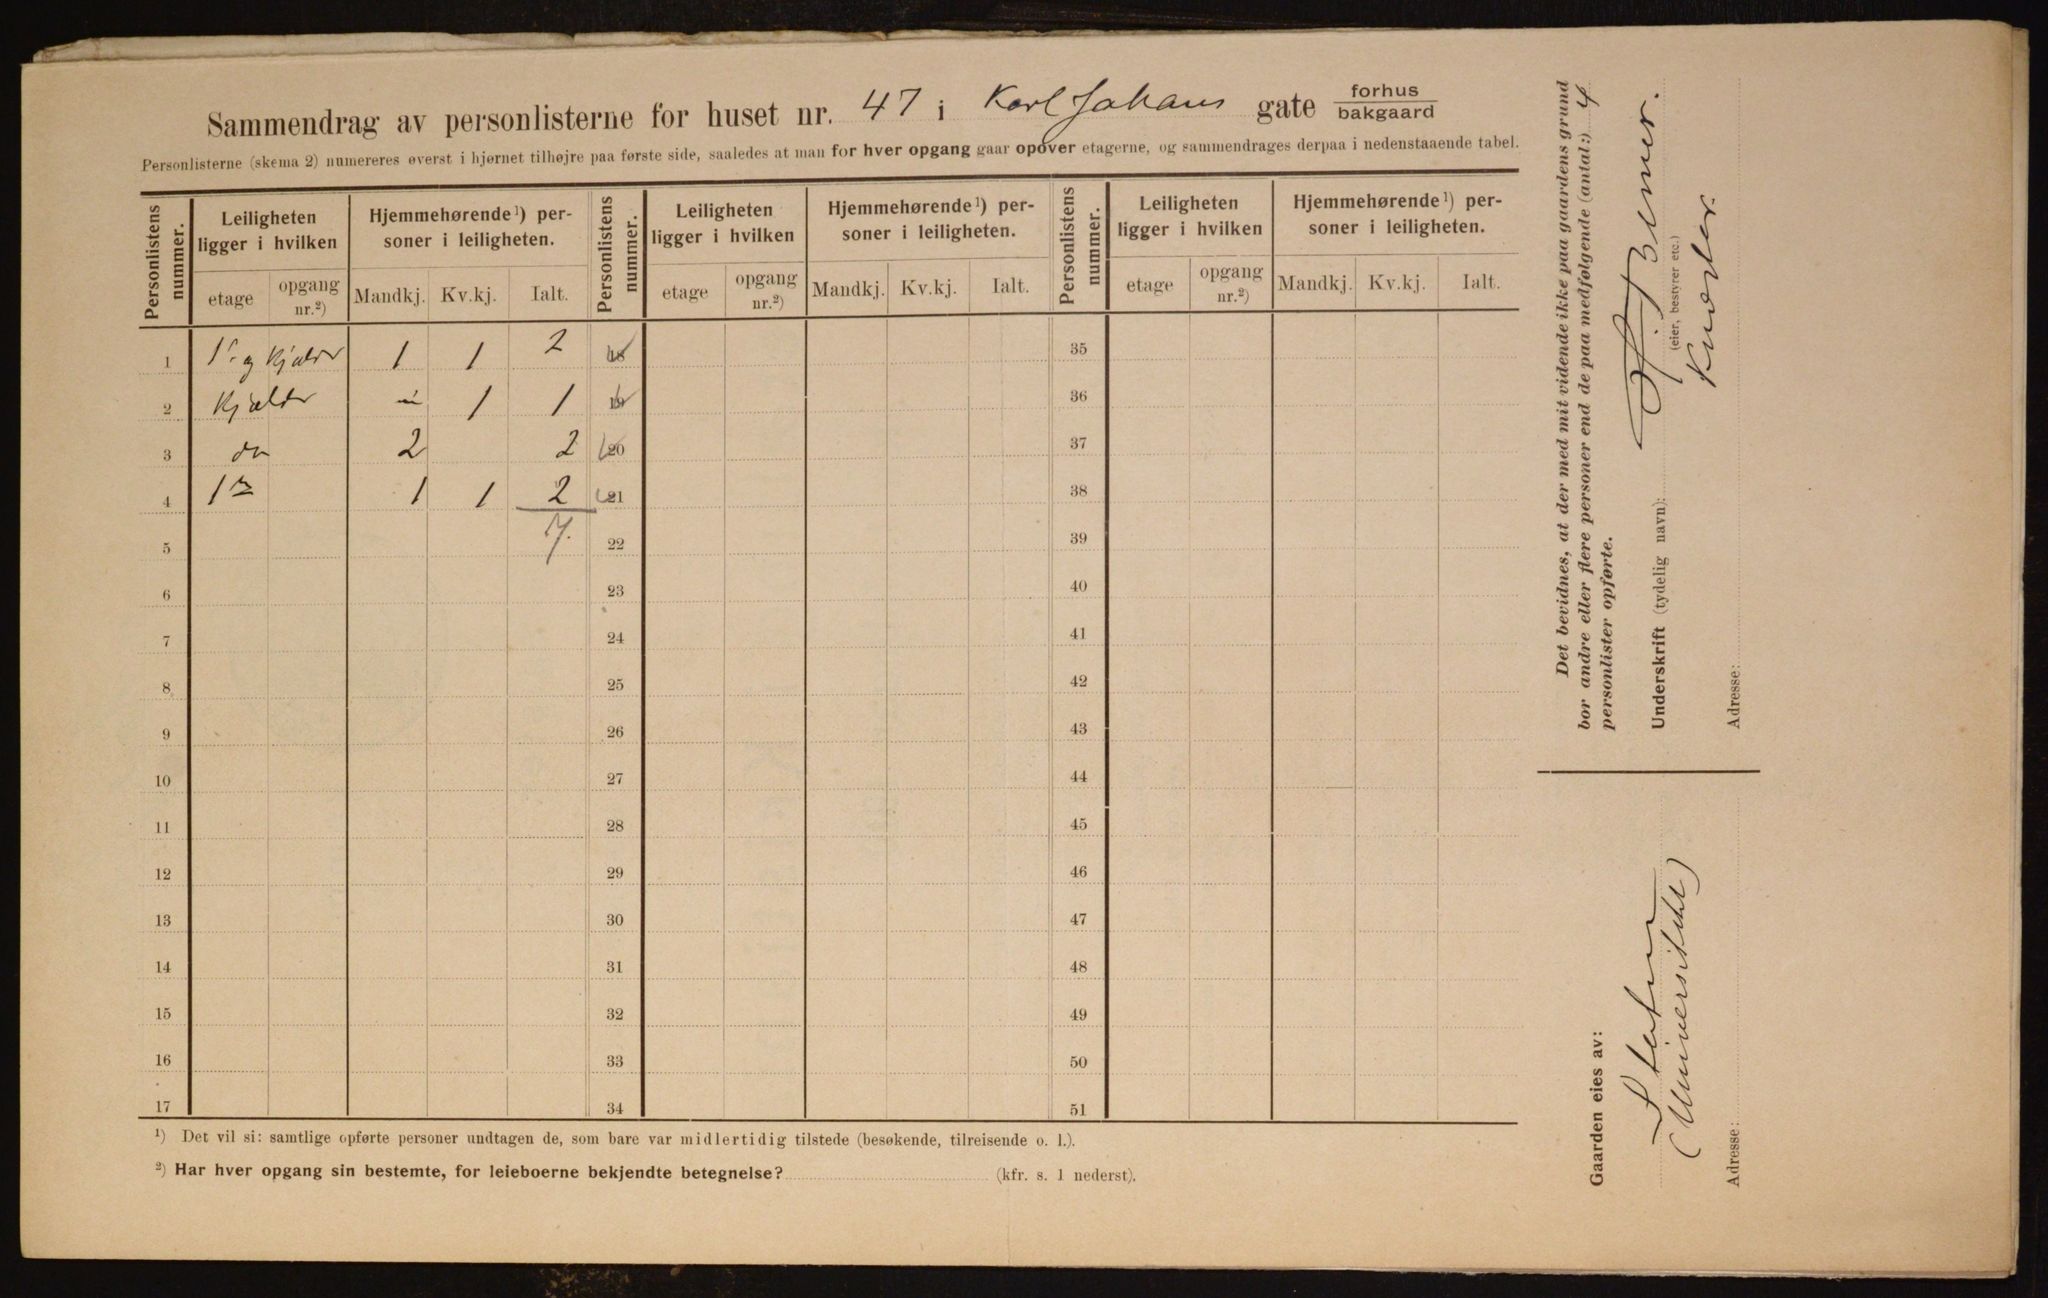 Sammendrag av personlisterne for huset nr. 47 i Karl Johans gate forhus
bakgaard
Personlisterne (skema 2) numereres øverst i hjørnet tilhøjre paa første side, saaledes at man for hver opgang gaar opover etagerne, og sammendrages derpaa i nedenstaaende tabel.
Personlistens nummer. Leiligheten ligger i hvilken Hjemmehørende¹) personer i leiligheten. Personlistens nummer. Leiligheten ligger i hvilken Hjemmehørende¹) personer i leiligheten. Personlistens nummer. Leiligheten ligger i hvilken Hjemmehørende¹) personer i leiligheten.
etage opgang nr.²) Mandkj. Kv.kj. Ialt. etage opgang nr.²) Mandkj. Kv.kj. Ialt. etage opgang nr.²) Mandkj. Kv.kj. Ialt.
1 1ˢ og Kjælder 1 1 2 18 35
2 Kjælder 1 1 19 36
3 do 2 2 20 37
4 1 1 1 2 21 38
5 7. 22 39
6 23 40
7 24 41
8 25 42
9 26 43
10 27 44
11 28 45
12 29 46
13 30 47
14 31 48
15 32 49
16 33 50
17 34 51
¹) Det vil si: samtlige opførte personer undtagen de, som bare var midlertidig tilstede (besøkende, tilreisende o. l.).
²) Har hver opgang sin bestemte, for leieboerne bekjendte betegnelse? (kfr. s. 1 nederst).
Det bevidnes, at der med mit vidende ikke paa gaardens grund
bor andre eller flere personer end de paa medfølgende (antal:) 4
personlister opførte.
Underskrift (tydelig navn):
(eier, bestyrer etc.)
Kvæstor.
Adresse:
Gaarden eies av:
Staten
(Universitetet)
Adresse: